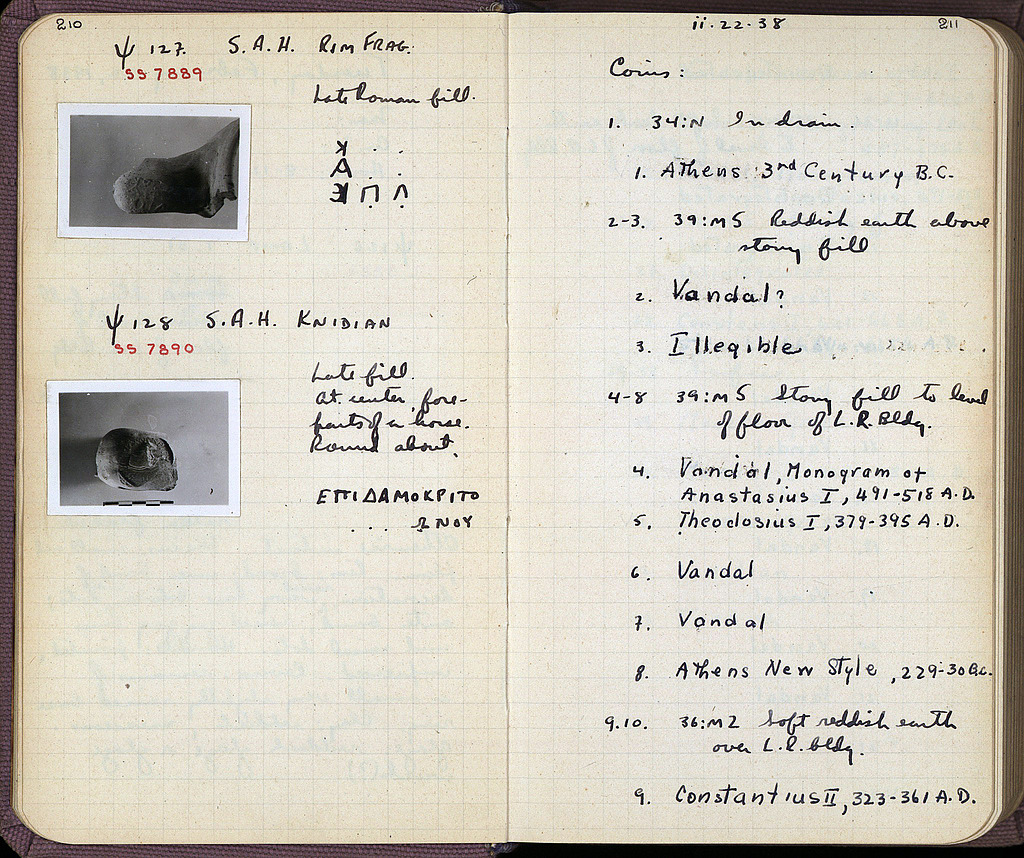 210
Ψ 127. S.A.H. RIM FRAG.
SS 7889
Late Roman fill.
Α . .
210
Ψ 128 S.A.H. KNIDIAN
SS 7890
Late fill.
At center, fore-
parts of a horse.
Round about,
ΕΠΙΔΑΜΟΚΡΙΤΟ
. . . . ΩΝΟΥ
ii.22.38
211
Coins:
1. 34:N In drain.
1. Athens 3rd Century B.C.
2-3. 39:M5 Reddish earth above
stony fill
2. Vandal?
3. Illegible
4-8 39:M5 Stony fill to level
of floor of L.R. Bldg.
4. Vandal, Monogram of
Anastasius I, 491-518 A.D.
5. Theodosius I, 379-395 A.D.
6. Vandal
7. Vandal
8. Athens New Style, 229-30 B.C.
9.10. 36:M2 Soft reddish earth
over L.R. bldg.
9. Constantius II, 323-361 A.D.